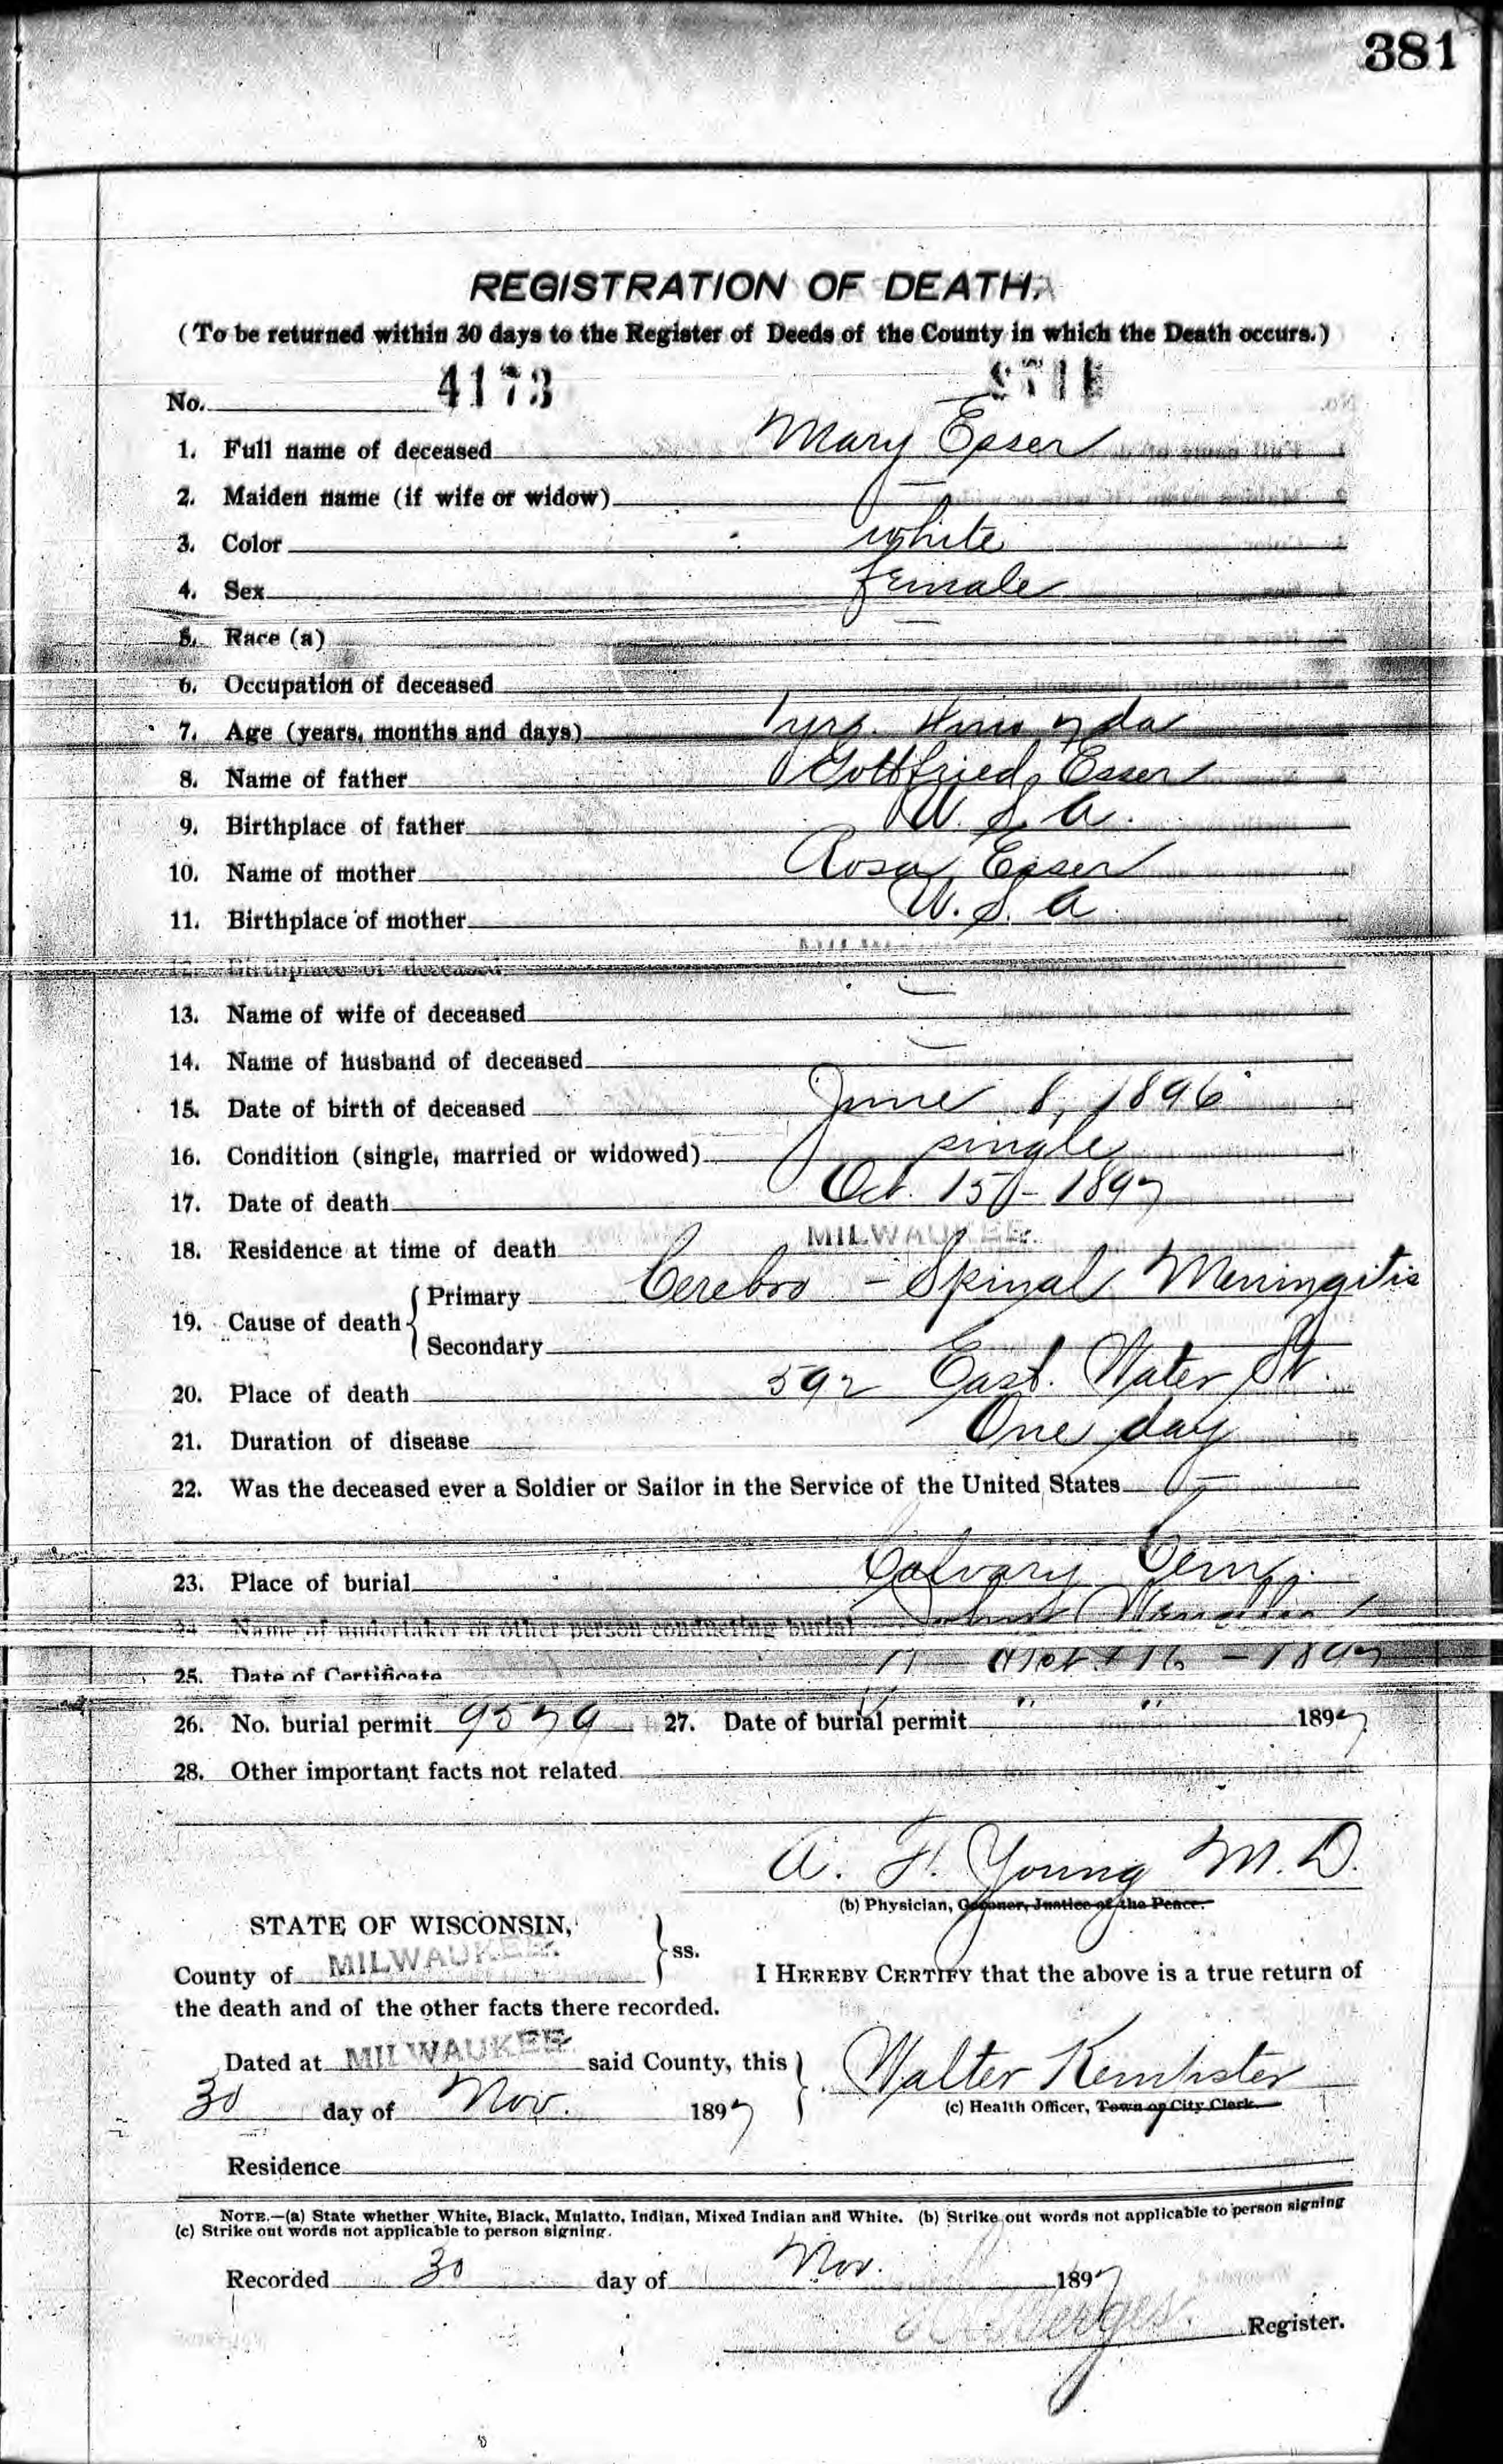 381
REGISTRATION OF DEATH.
(To be returned within 30 days to the Register of Deeds of the County in which the Death occurs.)
No. 4173
1. Full name of deceased Mary Esser
2. Maiden name (if wife or widow) —
3. Color white
4. Sex female
5. Race (a) —
6. Occupation of deceased
7. Age (years, months and days) 1 yrs. 4 mo 7 da
8. Name of father Gottfried Esser
9. Birthplace of father U. S. A.
10. Name of mother Rosa Esser
11. Birthplace of mother U. S. A
12. Birthplace of deceased
13. Name of wife of deceased —
14. Name of husband of deceased —
15. Date of birth of deceased June 8, 1896
16. Condition (single, married or widowed) single
17. Date of death Oct. 15 - 1897
18. Residence at time of death MILWAUKEE
19. Cause of death { Primary Cerebro - Spinal Meningitis
Secondary
20. Place of death 592 East Water St.
21. Duration of disease One day
22. Was the deceased ever a Soldier or Sailor in the Service of the United States —
23. Place of burial Calvary Cem.
24. Name of undertaker or other person conducting burial
25. Date of Certificate Oct. 16 - 1897
26. No. burial permit 9579 27. Date of burial permit " " 1897
28. Other important facts not related
A. F. Young M. D.
(b) Physician, Coroner, Justice of the Peace.
STATE OF WISCONSIN,
County of MILWAUKEE } ss.
I HEREBY CERTIFY that the above is a true return of
the death and of the other facts there recorded.
Dated at MILWAUKEE said County, this
30 day of Nov. 1897
Walter Kempster
(c) Health Officer, Town or City Clerk.
Residence
NOTE.—(a) State whether White, Black, Mulatto, Indian, Mixed Indian and White. (b) Strike out words not applicable to person signing
(c) Strike out words not applicable to person signing.
Recorded 30 day of Nov. 1897
Register.